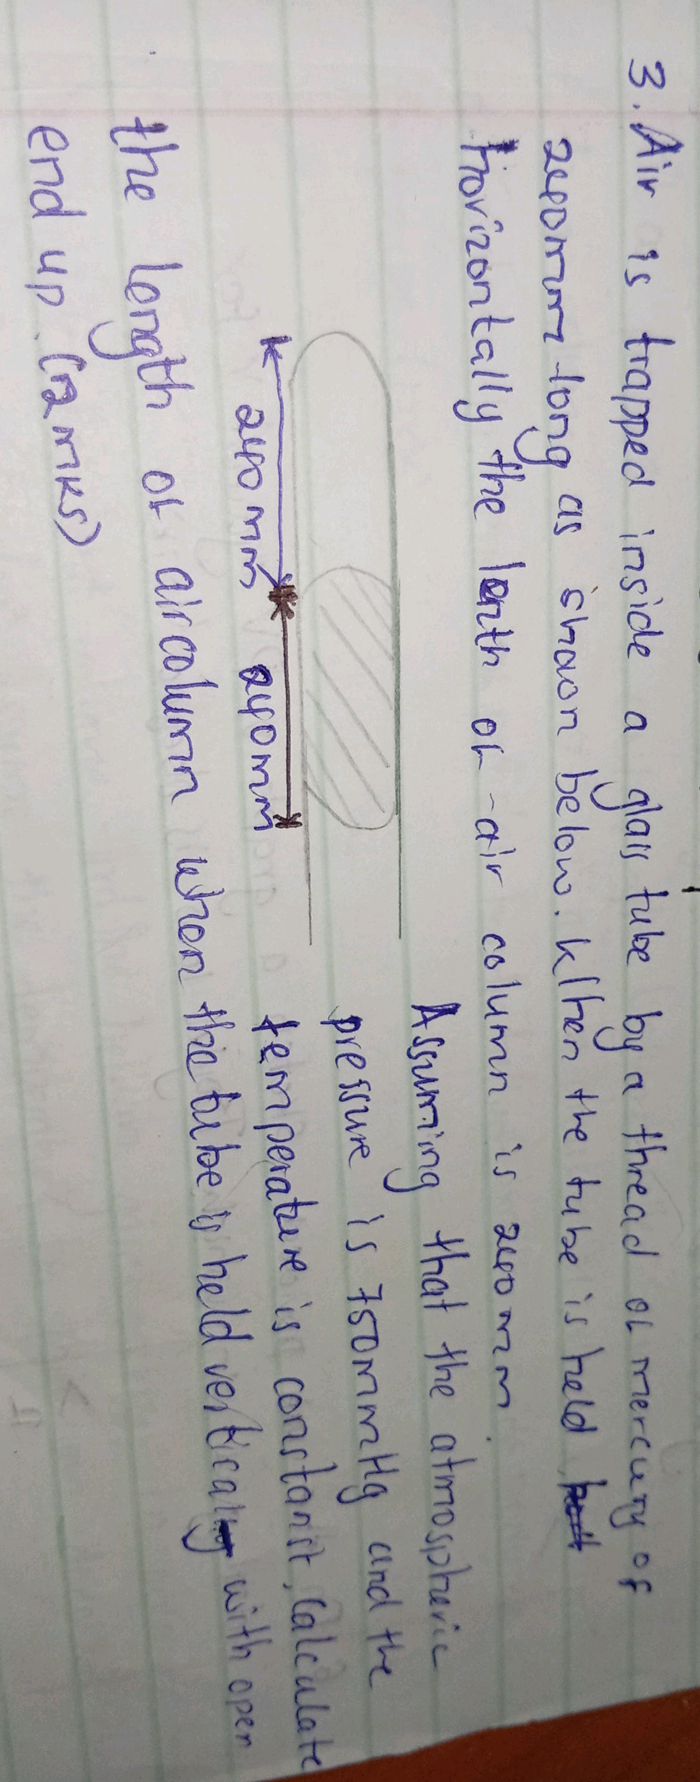 3. Air is trapped inside a glass tube by a thread of mercury of
240mm long as shown below. When the tube is held
horizontally the lenth of air column is 240mm.
240mm
240mm
Assuming that the atmospheric
pressure is 750mmHg and the
temperature is constant, Calculate
the length of aircolumn when the tube is held vertically with open
end up. (2mks)